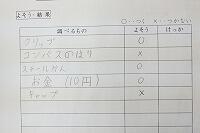 よそう・結果
○…つく ×…つかない
調べるもの よそう けっか
クリップ ○
コンパスのはり ×
スチールかん ○
お金(10円) ○
キャップ ×